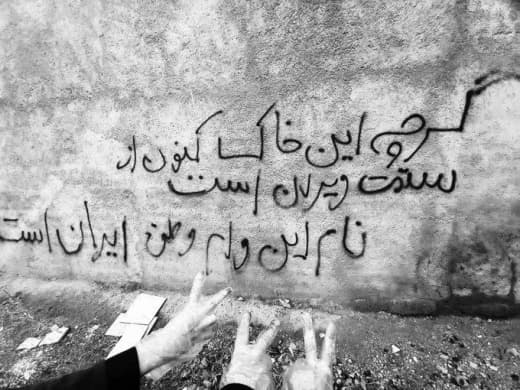 گرچه این خاکسا کنون از
ستمت ویران است
نام این وام وطن ایران است